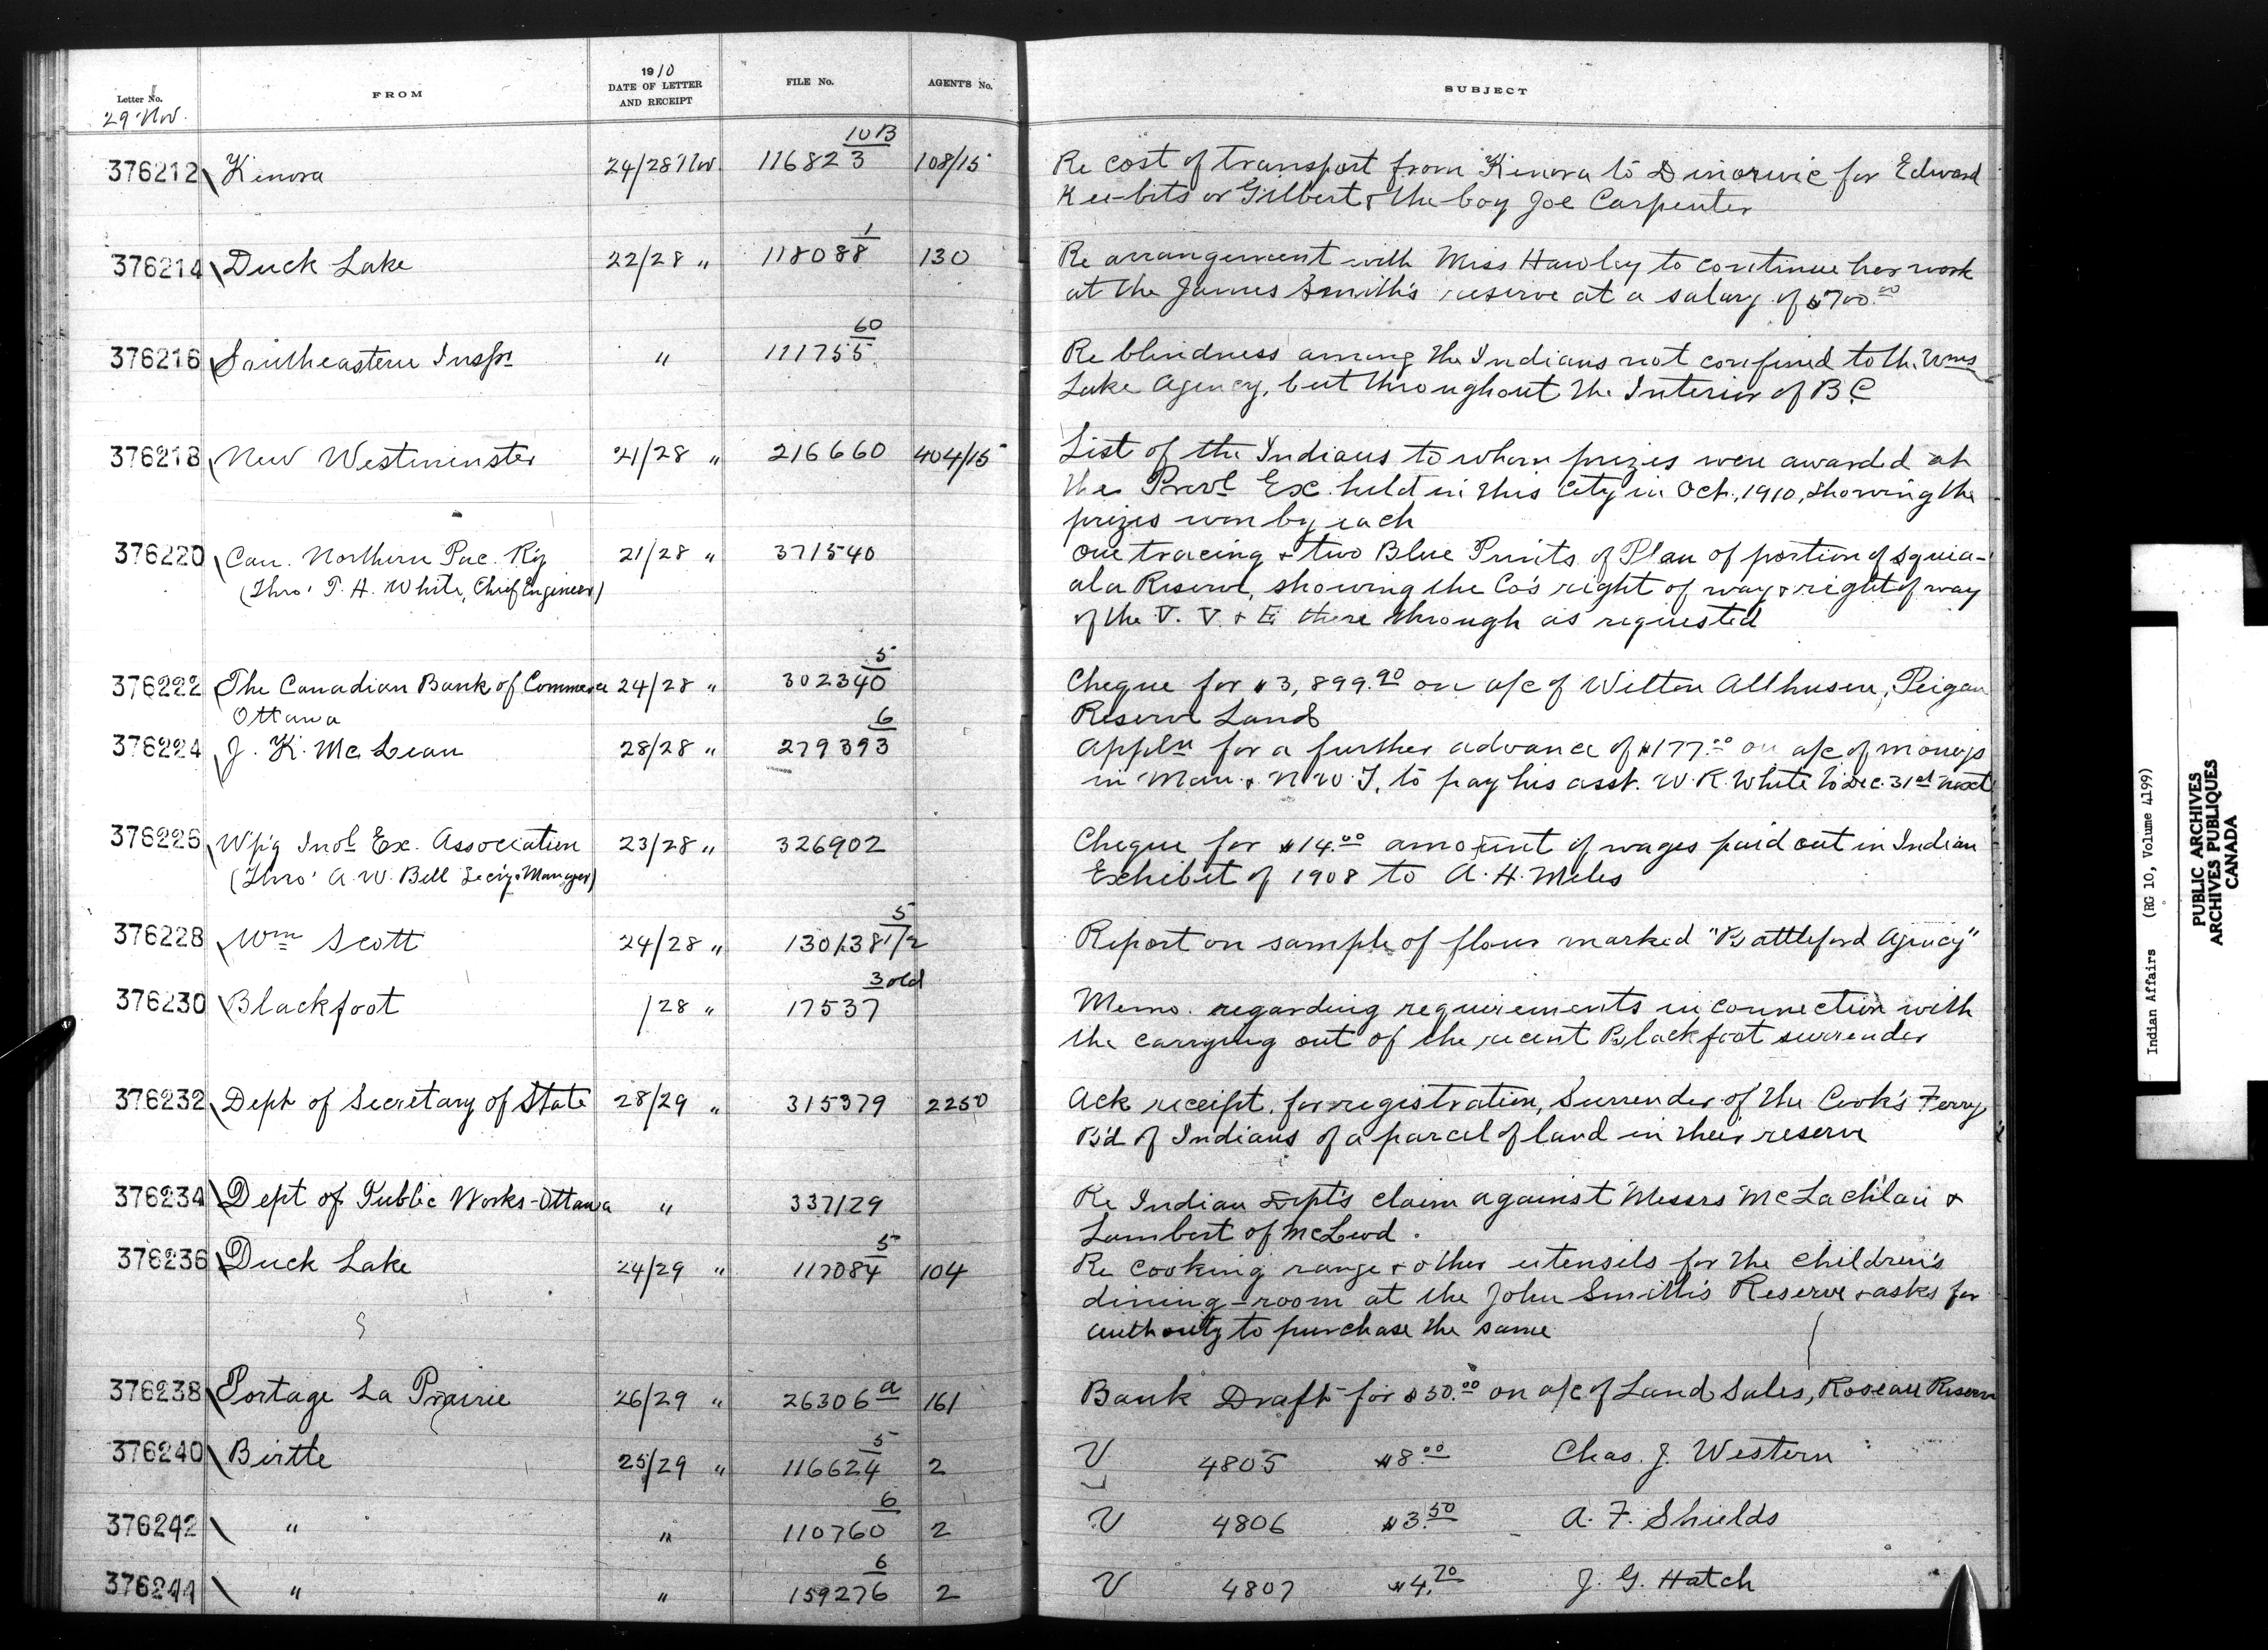 Letter No. FROM 1910 DATE OF LETTER AND RECEIPT FILE No. AGENT'S No. SUBJECT
29 Nov.
10B
376212 Kenora 24/28 Nov. 116823 108/15 Re cost of transport from Kenora to Dinorwic for Edward
Kee-bits or Gilbert & the boy Joe Carpenter
1
376214 Duck Lake 22/28 " 118088 130 Re arrangement with Miss Hawley to continue her work
at the James Smith's reserve at a salary of $700.00
60
376216 Southeastern Inspr " 111755 Re blindness among the Indians not confined to the Wms
Lake Agency, but throughout the Interior of B.C
376218 New Westminster 21/28 " 216660 404/15 List of the Indians to whom prizes were awarded at
the Provl Ex. held in this City in Oct., 1910, showing the
prizes won by each
376220 Can. Northern Pac. Ry 21/28 " 371540 One tracing & two Blue Prints of Plan of portion of Squia-
(Thro' T. H. White, Chief Engineer) ala Reserve, showing the Co's right of way & right of way
of the V. V. & E there through as requested
5
376222 The Canadian Bank of Commerce 24/28 " 302340 Cheque for $3,899.90 on a/c of Wilton Allhusen, Peigan
Ottawa Reserve Land
6
376224 J. K. McLean 28/28 " 279393 Appln for a further advance of $177.00 on a/c of moneys
in Man. & N.W.T. to pay his asst. W. R. White to Dec. 31st next
376226 W'p'g Indl Ex. Association 23/28 " 326902 Cheque for $14.00 amount of wages paid out in Indian
(Thro' A. W. Bell Sec'y & Manager) Exhibit of 1908 to A. H. Miles
5
376228 Wm Scott 24/28 " 130138 1/2 Report on sample of flour marked "Battleford Agency"
3 old
376230 Blackfoot /28 " 17537 Memo. regarding requirements in connection with
the carrying out of the recent Blackfoot surrender
376232 Dept of Secretary of State 28/29 " 315379 2250 Ack receipt, for registration, Surrender of the Cook's Ferry
B'd of Indians of a parcel of land in their reserve
376234 Dept of Public Works-Ottawa " 337129 Re Indian Dept's claim against Messrs McLachlan &
Lambert of McLeod.
5
376236 Duck Lake 24/29 " 117084 104 Re cooking range & other utensils for the children's
dining-room at the John Smith's Reserve & asks for
authority to purchase the same
376238 Portage La Prairie 26/29 " 26306 a 161 Bank Draft for $50.00 on a/c of Land Sales, Roseau Reserve
5
376240 Birtle 25/29 " 116624 2 V 4805 $8.00 Chas. J. Western
6
376242 " " 110760 2 V 4806 $3.50 A. F. Shields
6
376244 " " 159276 2 V 4807 $4.70 J. G. Hatch
Indian Affairs (RG 10, Volume 4199)
PUBLIC ARCHIVES
ARCHIVES PUBLIQUES
CANADA